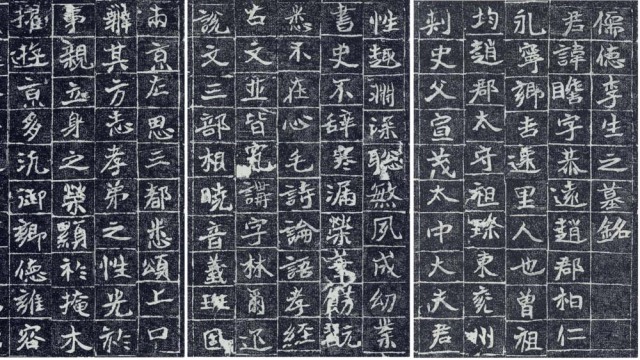 儒德李生之墓銘
君諱瞻字恭遠趙郡柏仁
永寧鄉吉遷里人也曾祖
均趙郡太守祖璨東兗州
刺史父宣茂太中大夫君
性趣淵深聰敏夙成幼業
書史不辭寒漏榮華翫
悉不在心毛詩論語孝經
古文並皆究講字林爾
說文三部相曉音義斑固
兩京左思三都悉頌上口
辯其方志孝弟之性光於
事親立身之榮顯於掩木
擢遊京多氾鄉德雍容